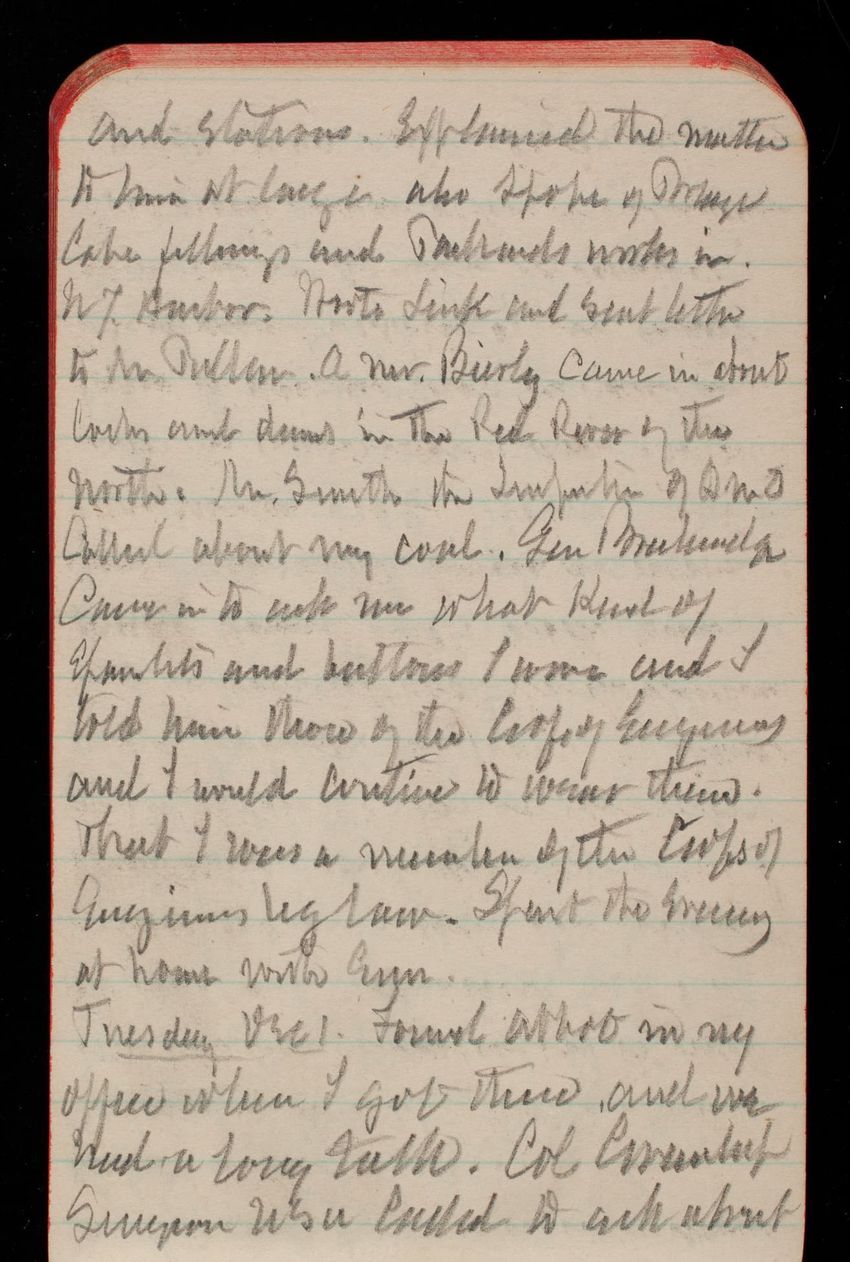 and stations. Explained the matter
to him at large also spoke of
Lake fillings and works in.
NY Harbor. Wrote Link and sent letter
to Mr. A Mr. Bierly came in about
locks and dams in the Red River of the
North. Mr. Smith the of QMD
Called about my coal. Gen Breckinridge
Came in to ask me what Kind of
Epaulets and buttons I wore and I
told him those of the Corps of Engineers
and I would continue to wear them.
That I was a member of the Corps of
Engineers by law. Spent the Evening
at home with
Tuesday Dec 1. Found Abbot in my
office when I got there and we
had a long talk. Col
Surgeon USA Called to ask about